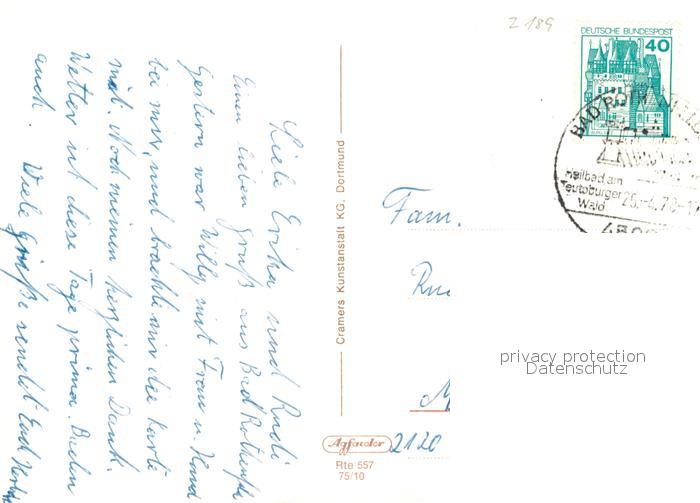 Liebe Erika und Rudi
Einen lieben Gruß aus Bad Rothenfelde
Gestern war Willy mit Frau u.
bei mir, und brachte mir die Karte
mit. Noch meinen herzlichen Dank.
Wetter ist diese Tage prima. Baden
auch. Viele Grüße sendet Euch
Cramers Kunstanstalt KG. Dortmund
Agfacolor
Rte 557
75/10
Z 189
DEUTSCHE BUNDESPOST
40
BAD ROTHENFELDE
Heilbad am
Teutoburger
Wald
Fam.
2120
privacy protection
Datenschutz